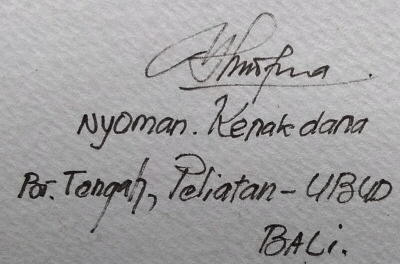 Nyoman. Kenakdana
Br. Tengah, Peliatan - UBUD
BALi.